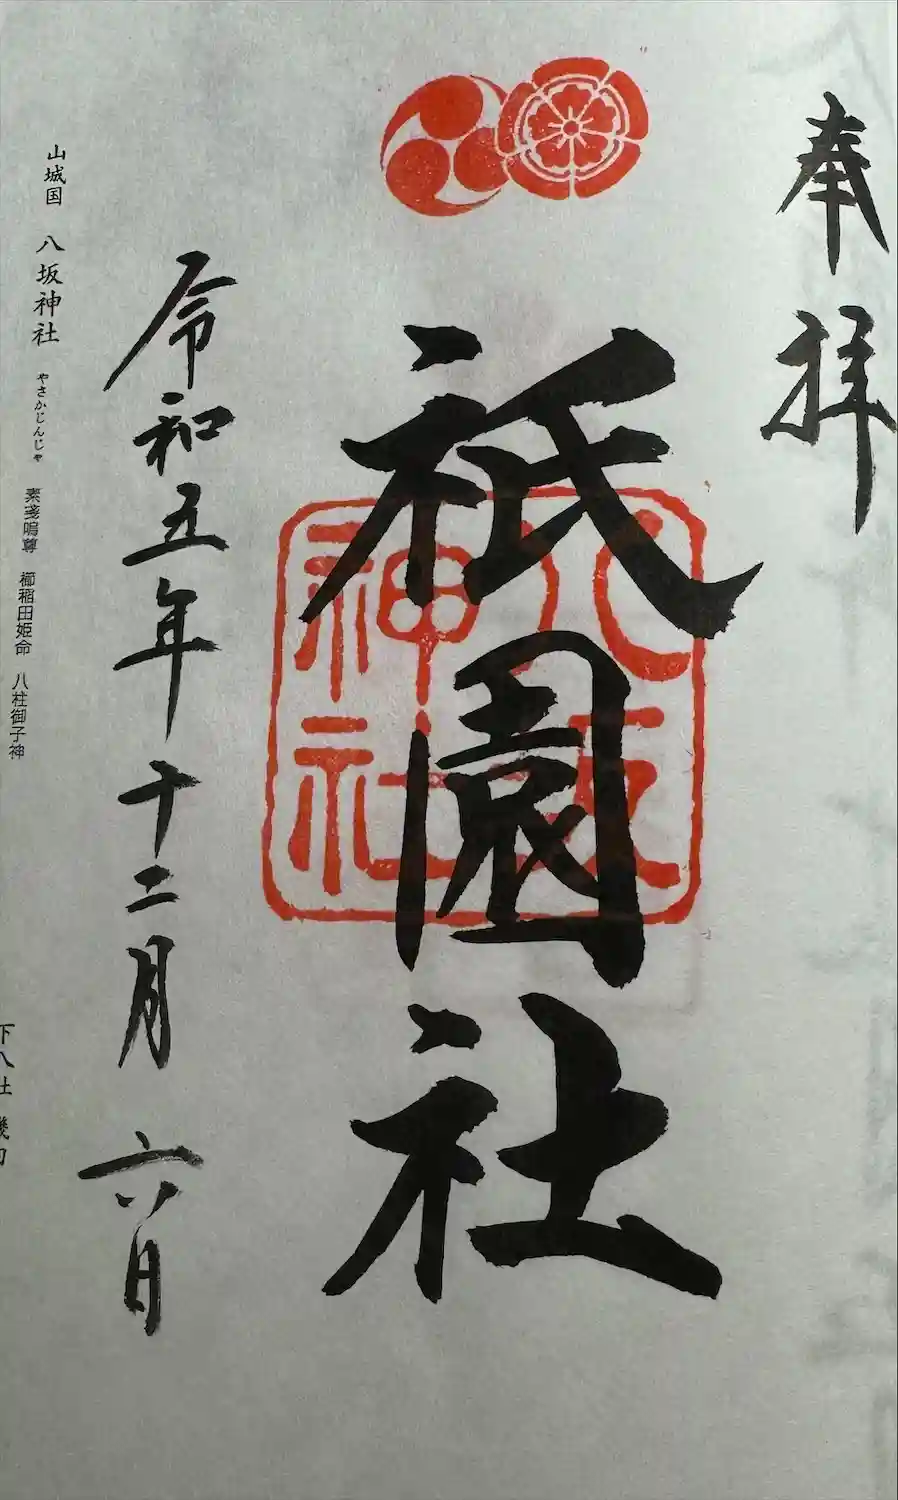 奉拝
祇園社
八坂
神社
令和五年十二月六日
山城国 八坂神社 やさかじんじゃ 素戔嗚尊 櫛稲田姫命 八柱御子神